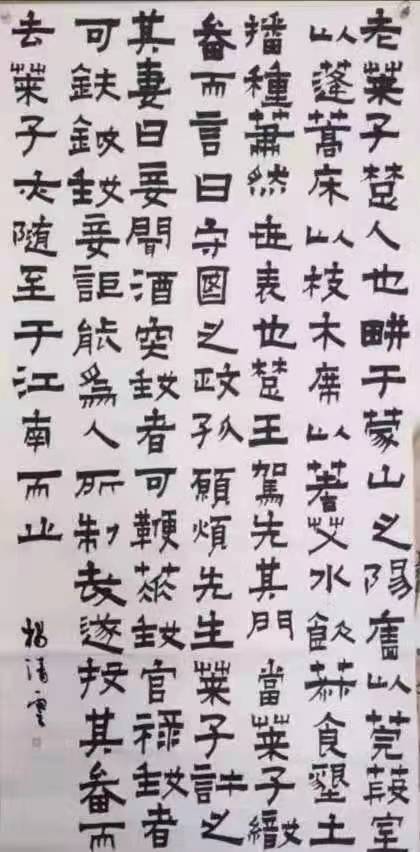 老萊子楚人也畊于蒙山之陽廬以莞葭室
以蓬蒿床以枝木席以蓍艾水飲食墾土
播種蕭然世表也楚王駕先其門當萊子
畚而言曰守國之政孤願煩先生萊子許之
其妻曰妾聞酒者可鞭官祿者
可鈇妾詎能爲人所制哉遂投其畚而
去萊子亦隨至于江南而止
楊清雲